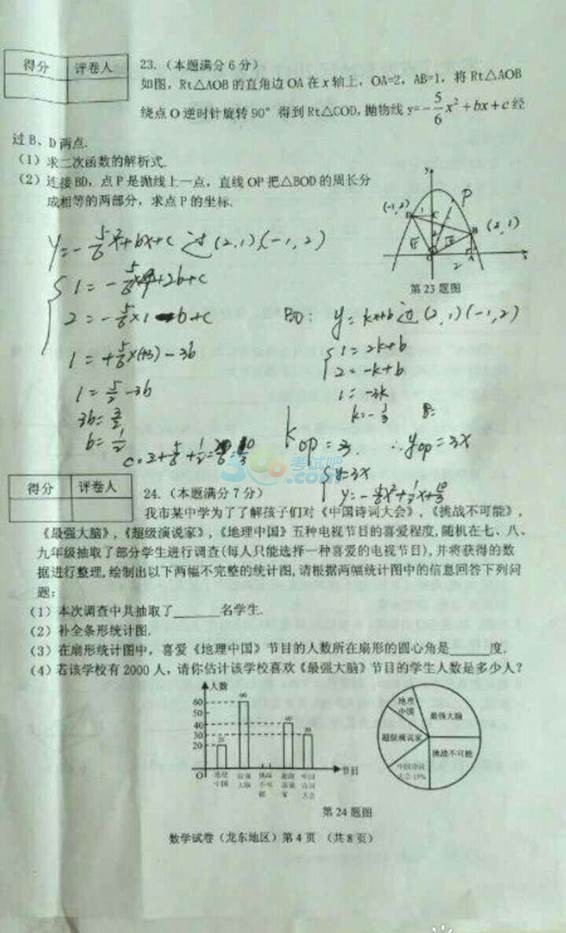 得分 评卷人
23.（本题满分6分）
如图，Rt△AOB的直角边OA在x轴上，OA=2，AB=1，将Rt△AOB
绕点O逆时针旋转90°得到Rt△COD，抛物线y=-5/6x²+bx+c经
过B、D两点.
（1）求二次函数的解析式.
（2）连接BD，点P是抛线上一点，直线OP把△BOD的周长分
成相等的两部分，求点P的坐标.
y=-5/6x²+bx+c 过(2,1)(-1,2)
2=-5/6×1-b+c
1=5/2-3b
3b=3/2
b=1/2
y=kx+b过(2,1)(-1,2)
1=2k+b
2=-k+b
1=-3k
k=-1/3
kop=3 ∴yop=3x
y=3x
(-1,2)
P
(2,1)
第23题图
得分 评卷人
24.（本题满分7分）
我市某中学为了了解孩子们对《中国诗词大会》，《挑战不可能》，
《最强大脑》，《超级演说家》，《地理中国》五种电视节目的喜爱程度，随机在七、八、
九年级抽取了部分学生进行调查(每人只能选择一种喜爱的电视节目)，并将获得的数
据进行整理，绘制出以下两幅不完整的统计图，请根据两幅统计图中的信息回答下列问
题：
（1）本次调查中共抽取了______名学生.
（2）补全条形统计图.
（3）在扇形统计图中，喜爱《地理中国》节目的人数所在扇形的圆心角是______度.
（4）若该学校有2000人，请你估计该学校喜欢《最强大脑》节目的学生人数是多少人？
人数
60
50
40
30
20
O
节目
地理中国
最强大脑
超级演说家
挑战不可能
第24题图
数学试卷（龙东地区）第4页 （共8页）